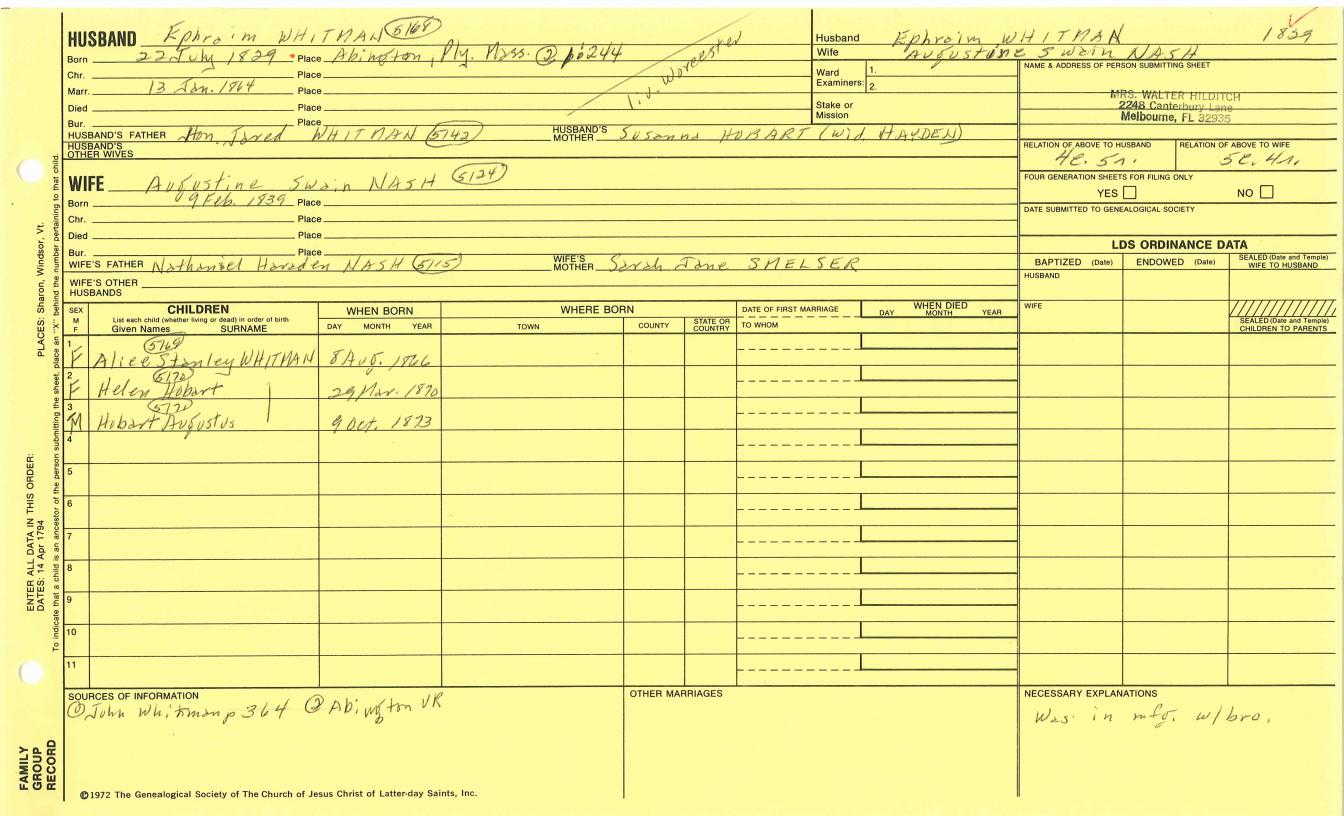 HUSBAND Ephraim WHITMAN 5168
Born 22 July 1829 Place Abington, Ply. Mass. ② p244
Chr. Place
Marr. 13 Jan. 1864 Place
Died Place
Bur. Place
liv. Worcester
HUSBAND'S FATHER Hon. Jared WHITMAN 5142 HUSBAND'S MOTHER Susanna HOBART (wid HAYDEN)
HUSBAND'S OTHER WIVES
WIFE Augustine Swain NASH 5124
Born 9 Feb. 1839 Place
Chr. Place
Died Place
Bur. Place
WIFE'S FATHER Nathaniel Haraden NASH 5115 WIFE'S MOTHER Sarah Jane SMELSER
WIFE'S OTHER HUSBANDS
Husband Ephraim WHITMAN 1829
Wife Augustine Swain NASH
Ward Examiners: 1.
2.
Stake or Mission
NAME & ADDRESS OF PERSON SUBMITTING SHEET
MRS. WALTER HILDITCH
2248 Canterbury Lane
Melbourne, FL 32935
RELATION OF ABOVE TO HUSBAND RELATION OF ABOVE TO WIFE
4c. 5r. 5c. 4r.
FOUR GENERATION SHEETS FOR FILING ONLY
YES NO
DATE SUBMITTED TO GENEALOGICAL SOCIETY
LDS ORDINANCE DATA
BAPTIZED (Date) ENDOWED (Date) SEALED (Date and Temple) WIFE TO HUSBAND
HUSBAND
WIFE
SEALED (Date and Temple) CHILDREN TO PARENTS
SEX M F
CHILDREN
List each child (whether living or dead) in order of birth
Given Names SURNAME
WHEN BORN
DAY MONTH YEAR
WHERE BORN
TOWN COUNTY STATE OR COUNTRY
DATE OF FIRST MARRIAGE
TO WHOM
WHEN DIED
DAY MONTH YEAR
1 F 5169 Alice Stanley WHITMAN 8 Aug. 1866
2 F 5170 Helen Hobart 29 Mar. 1870
3 M Hobart Augustus 9 Oct. 1873
4
5
6
7
8
9
10
11
SOURCES OF INFORMATION
① John Whitman p 364 ② Abington VR
OTHER MARRIAGES
NECESSARY EXPLANATIONS
Was in mfg. w/bro.
©1972 The Genealogical Society of The Church of Jesus Christ of Latter-day Saints, Inc.
FAMILY GROUP RECORD
ENTER ALL DATA IN THIS ORDER:
DATES: 14 Apr 1794 PLACES: Sharon, Windsor, Vt.
To indicate that a child is an ancestor of the person submitting the sheet, place an "X" behind the number pertaining to that child.